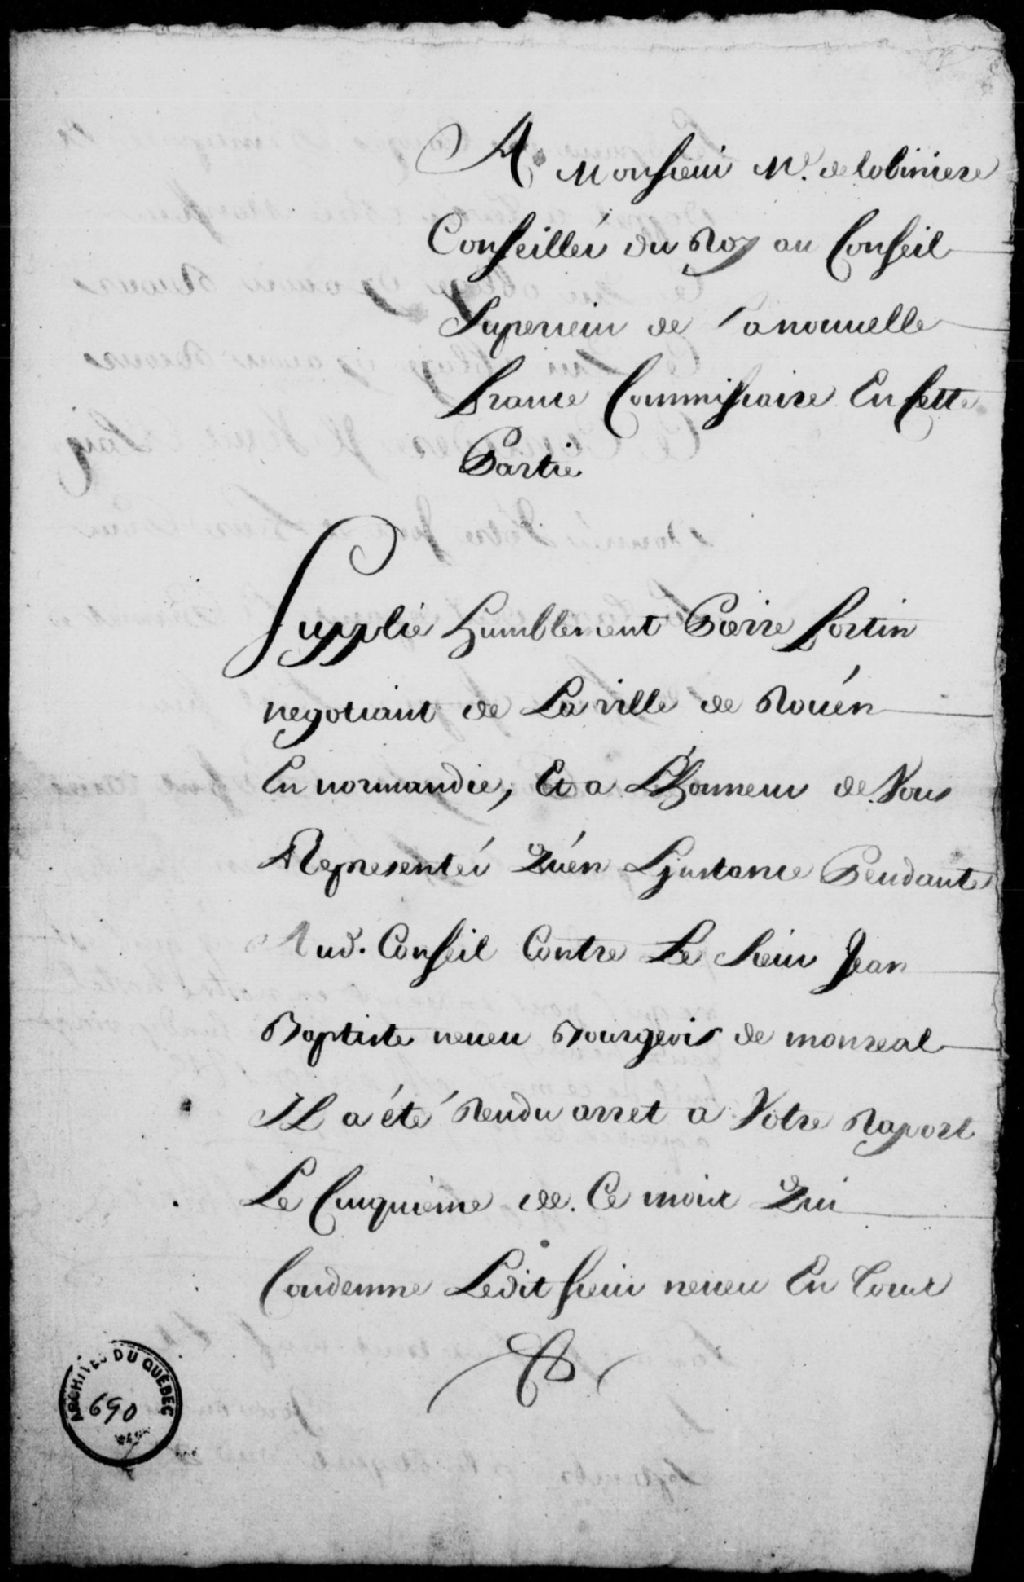 A Monsieur Mr. delobiniere
Conseiller du Roy au Conseil
Superieur de Lanouuelle
france Commissaire En Cette
Partie
Supplie humblement Pierre fortin
negotiant de La ville de Roüén
En normandie, Et a L'honneur de Vous
Representér Quén Linstance Pendante
Aud. Conseil Contre Le sieur Jean
Baptiste neueu Bourgeois de monreal
Il a été Rendu arret a Votre Raport
Le Cinquieme de Ce mois Qui
Condemne Ledit sieur neueu En tous
ARCHIVES DU QUÉBEC
690